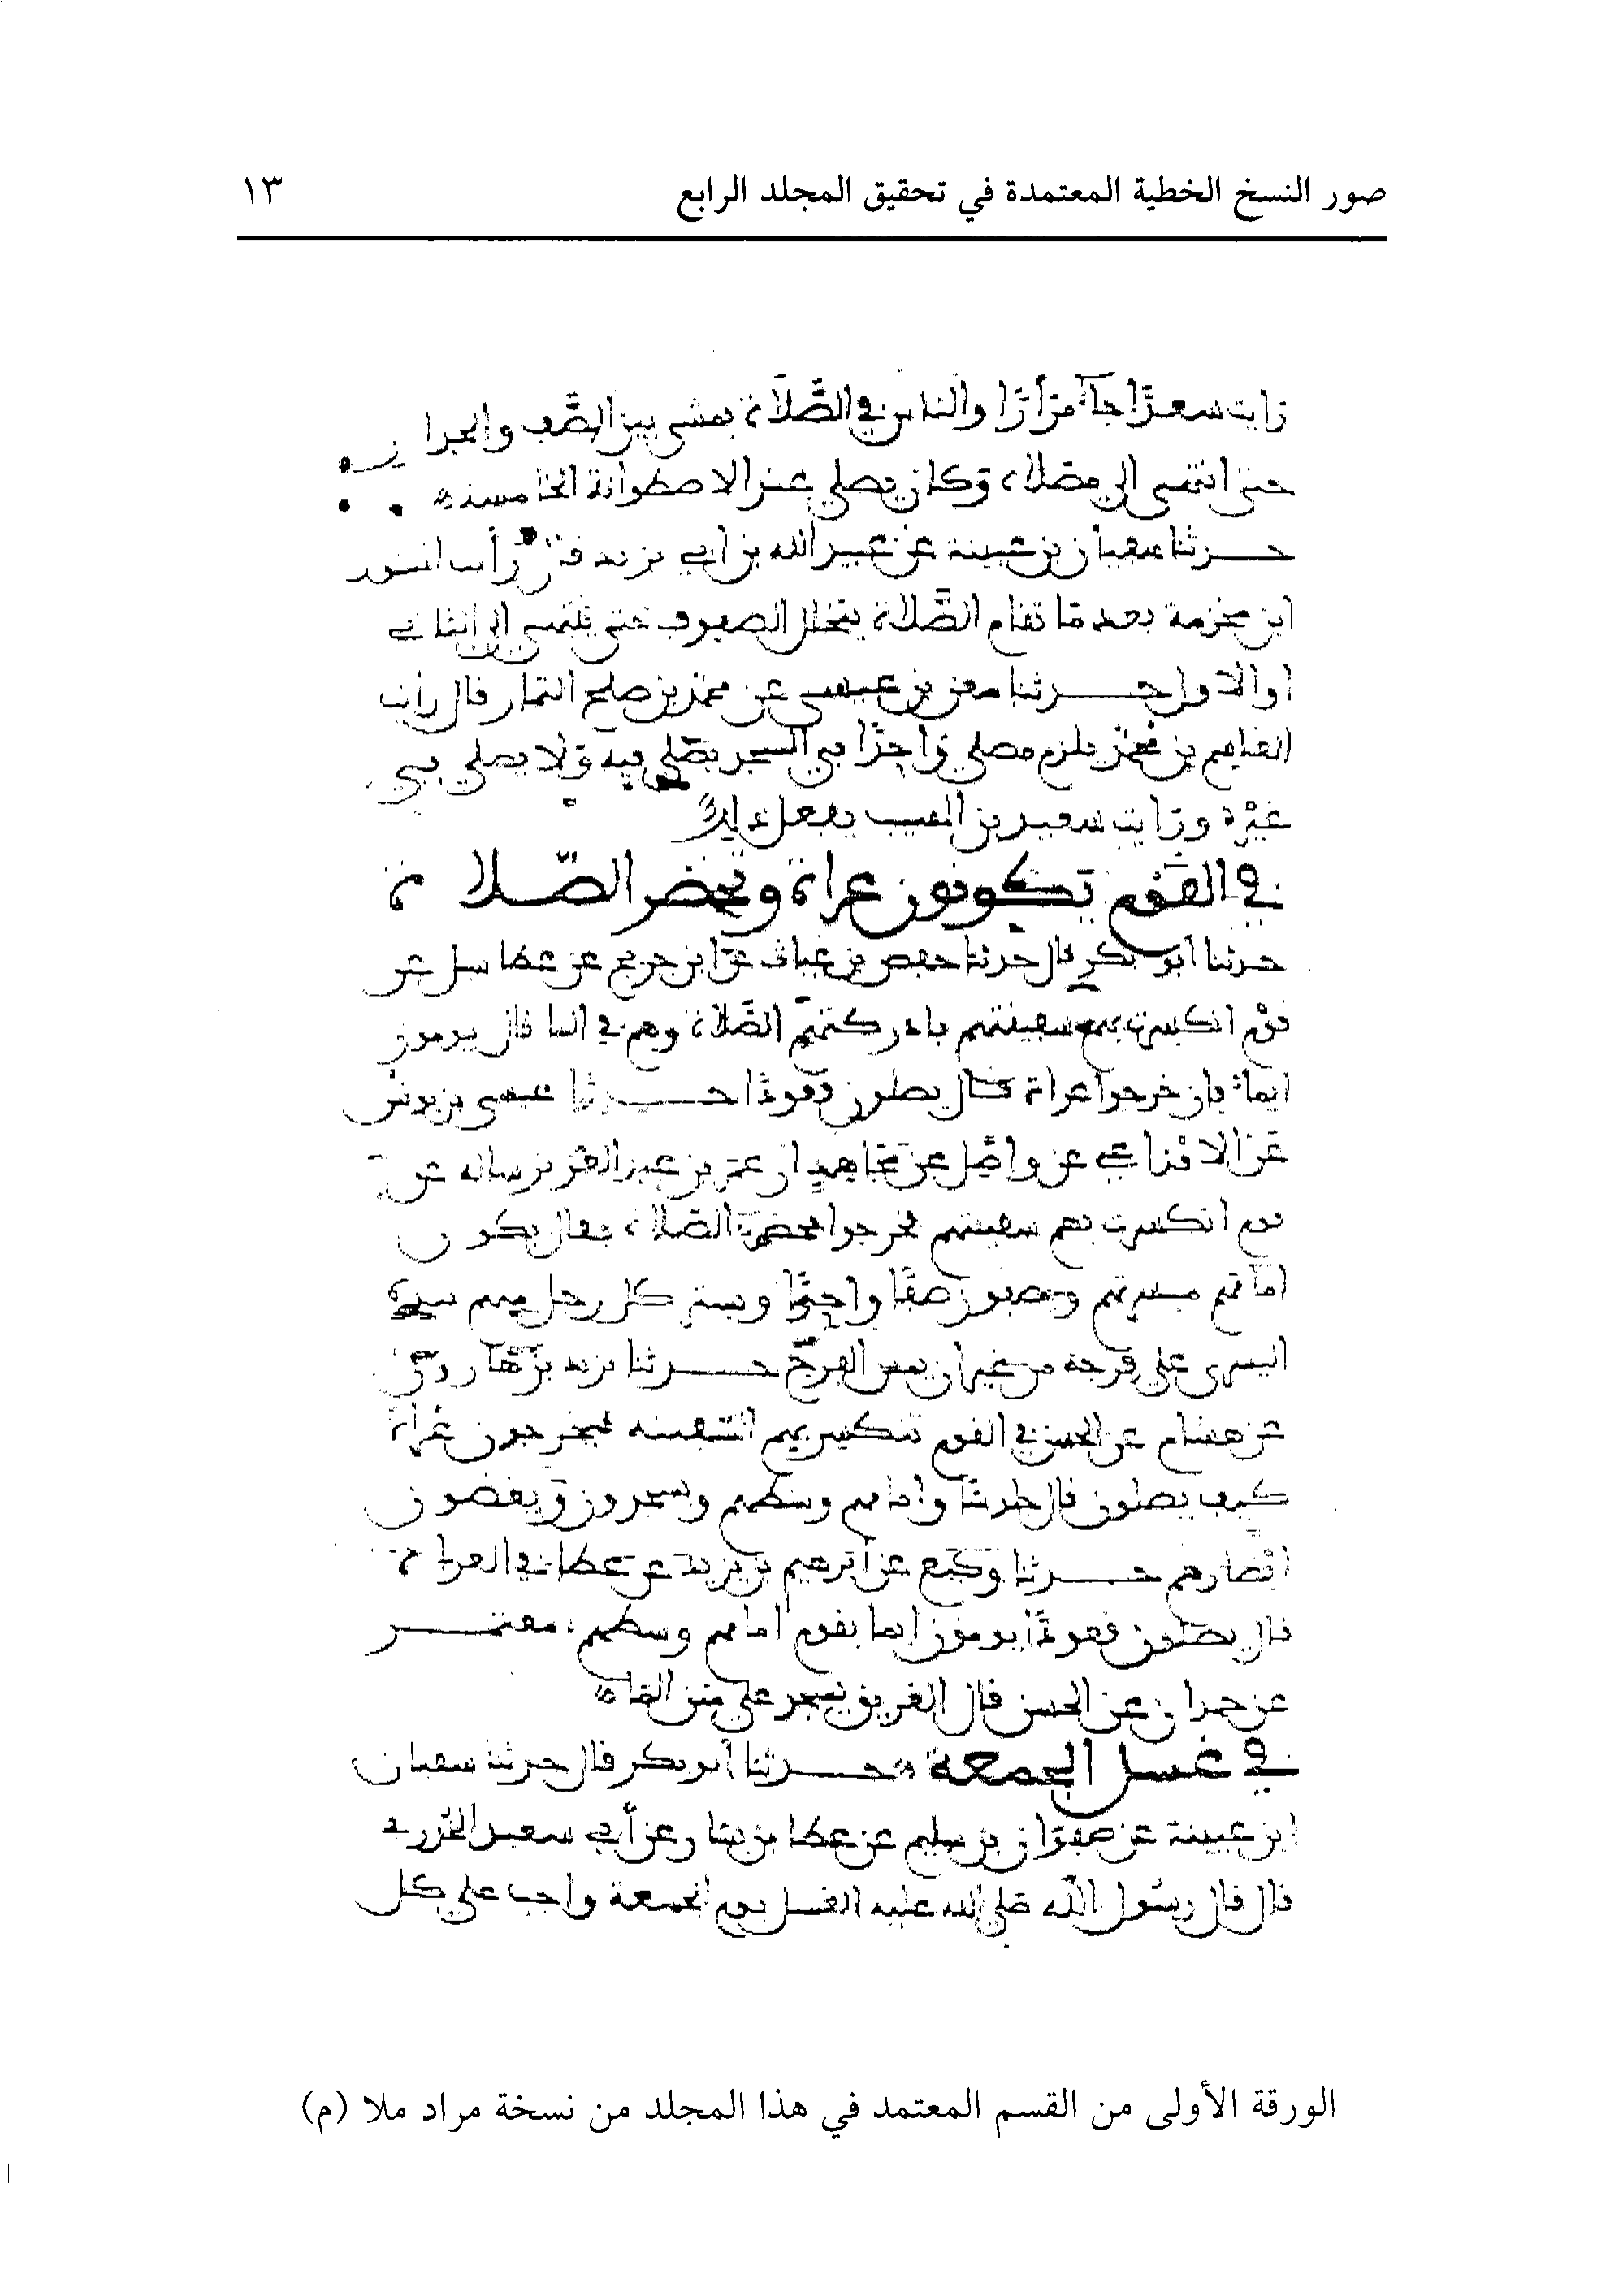 صور النسخ الخطية المعتمدة في تحقيق المجلد الرابع ١٣
رايت سعدا جاء مرارا والناس في الصلاة يمشي بين الصف والجدار
حتى انتهى الى مصلاه وكان يصلي عند الاصطوانة الخامسة
حدثنا سفيان بن عيينة عن عبيد الله بن ابي يزيد قال رأيت المسور
ابن مخرمة بعد ما تقام الصلاة يتخلل الصفوف حتى ينتهي الى الثاني
او الاول حدثنا معن بن عيسى عن محمد بن صلح التمار قال رأيت
القاسم بن محمد يلزم مصلى واحدا في المسجد يصلي فيه ولا يصلي في
غيره ورايت سعيد بن المسيب يفعل ذلك
في القوم يكونون عراة وتحضر الصلاة
حدثنا أبو بكر قال حدثنا حفص بن غياث عن ابن جريج عن عطا سئل عن
قوم انكسرت بهم سفينتهم فادركتهم الصلاة وهم في الما قال يومون
ايماء فان خرجوا عراة قال يصلون قعودا حدثنا عيسى بن يونس
عن الاوزاعي عن واصل عن مجاهد ان عمر بن عبد العزيز ساله عن
قوم انكسرت بهم سفينتهم فخرجوا فحضرت الصلاة فقال يكون
امامهم ميسرتهم ويصفون صفا واحدا ويستر كل رجل منهم بيده
اليسرى على فرجه من غير ان يمس الفرج حدثنا يزيد بن هارون
عن هشام عن الحسن في القوم تنكسر بهم السفينه فيخرجون عراة
كيف يصلون قال جلوسا وامامهم وسطهم ويسجدون ويغضون
ابصارهم حدثنا وكيع عن ابرهيم بن يزيد عن عطا في العراة
قال يصلون قعودا يومون ايما يقوم امامهم وسطهم معتمر
عن حمران عن الحسن قال الغريق يسجد على متن الماء
في غسل الجمعة حدثنا أبو بكر قال حدثنا سفيان
ابن عيينة عن صفوان بن سليم عن عطا بن يسار عن أبي سعيد الخدري
قال قال رسول الله صلى الله عليه الغسل يوم الجمعة واجب على كل
الورقة الأولى من القسم المعتمد في هذا المجلد من نسخة مراد ملا (م)